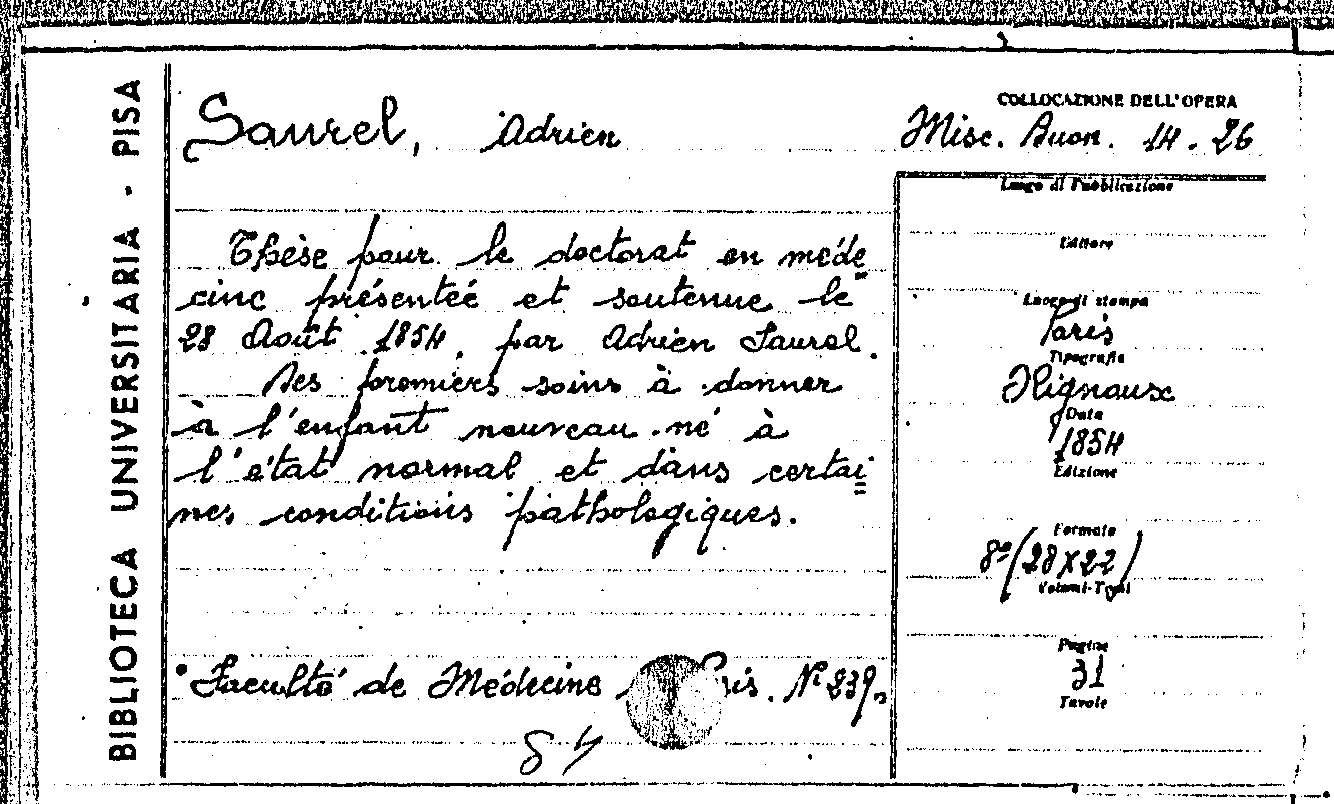 BIBLIOTECA UNIVERSITARIA - PISA
Saurel, Adrien
COLLOCAZIONE DELL'OPERA
Misc. Buon. 14. 26
Thèse pour le doctorat en méde
cine présenteé et soutenue le
28 Août 1854, par Adrien Saurel.
Des premiers soins à donner
à l'enfant nouveau-né à
l'état normal et dans certai
nes conditions pathologiques.
Faculté de Médecine Paris. N° 239.
84
Luogo di Pubblicazione
Editore
Luogo di stampa
Paris
Tipografia
Rignoux
Data
1854
Edizione
Formato
8º (28x22)
Volumi-Tomi
Pagine
31
Tavole